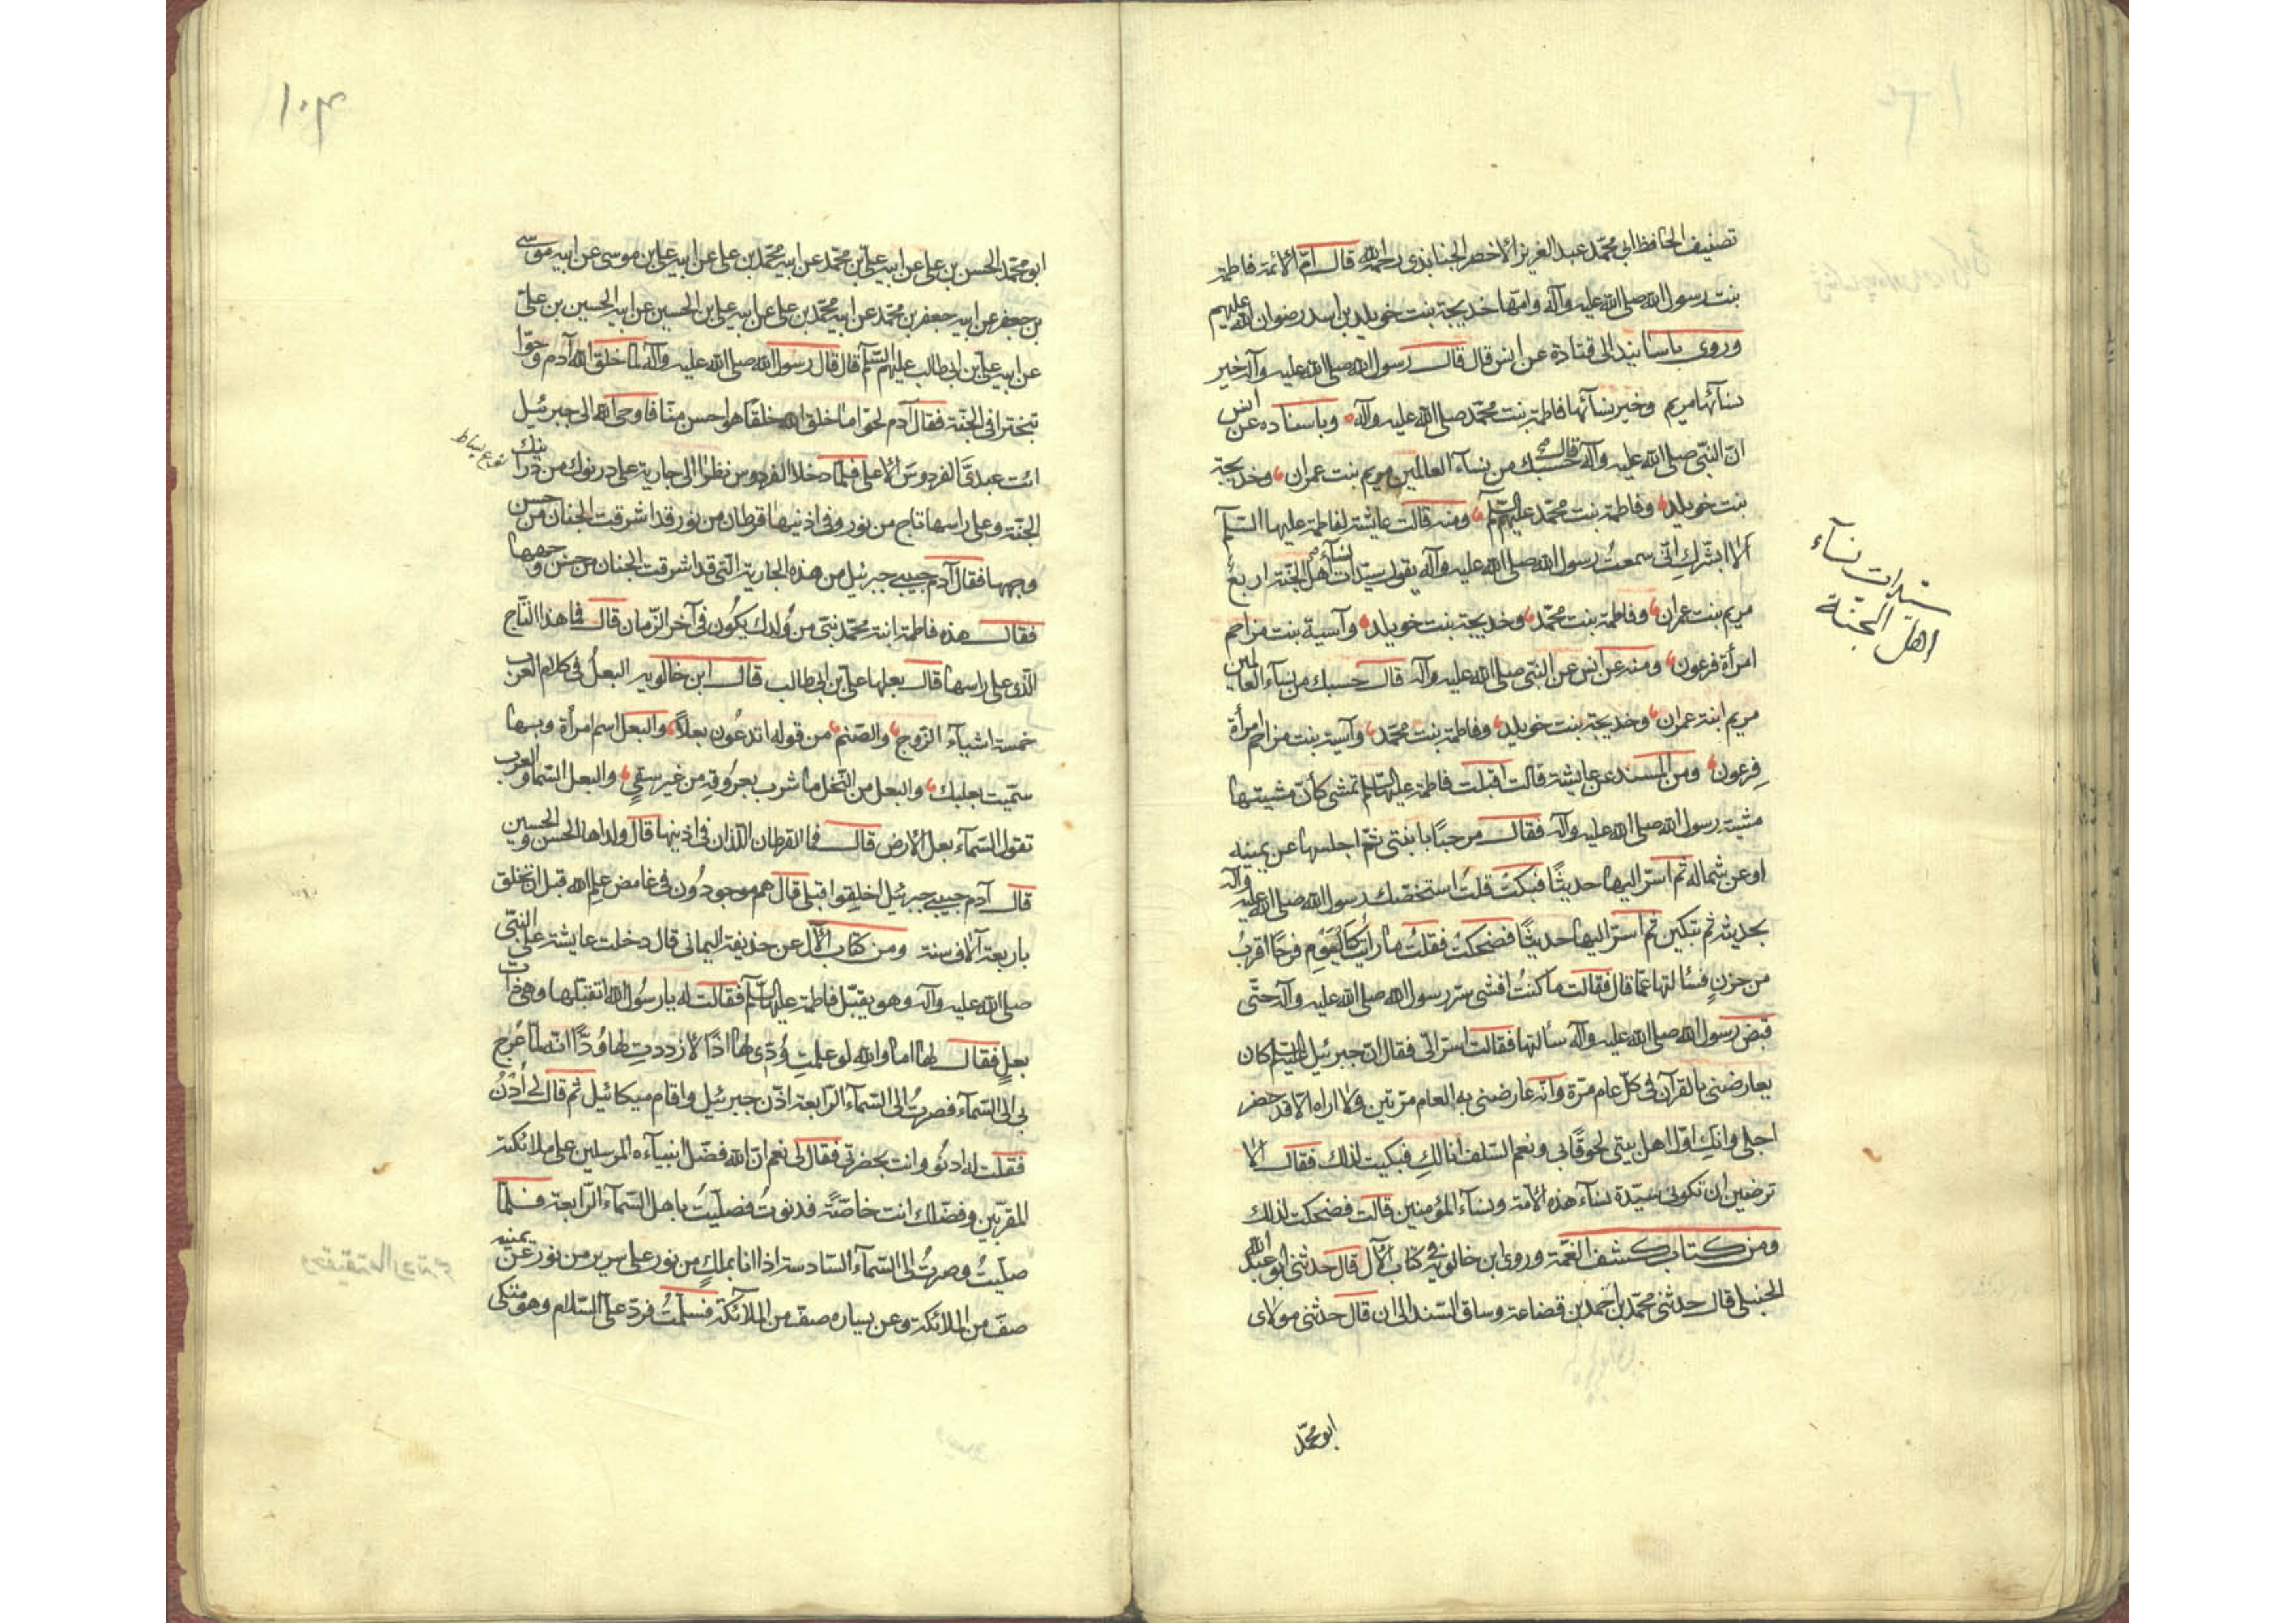 تصنيف الحافظ ابی محمّد عبد العزيز الاخضر الجنابذی رحمه الله قال امّ الائمة فاطمة
بنت رسول الله صلی الله عليه وآله وامّها خديجة بنت خويلد بن اسد رضوان الله عليهم
وروی باسانيد الی قتادة عن انس قال قال رسول الله صلی الله عليه وآله خير
نسآئها مريم وخير نسآئها فاطمة بنت محمّد صلی الله عليه وآله وباسناده عن انس
انّ النبّی صلی الله عليه وآله قال حسبك من نسآء العالمين مريم بنت عمران وخديجة
بنت خويلد وفاطمة بنت محمّد عليهم السّلم ومنه قالت عايشة لفاطمة عليها السّلم
الا ابشّرك انّی سمعتُ رسول الله صلی الله عليه وآله يقول سيّدات نسآء اهل الجنّة اربع
مريم بنت عمران وفاطمة بنت محمّد وخديجة بنت خويلد وآسية بنت مزاحم
امرأة فرعون ومنه عن انس عن النبّی صلی الله عليه وآله قال حسبك من نسآء العالمين
مريم ابنة عمران وخديجة بنت خويلد وفاطمة بنت محمّد وآسية بنت مزاحم امرأة
فِرعون ومن المسند عن عايشة قالت اقبلت فاطمة عليها السّلم تمشی كأنّ مشيتها
مشية رسول الله صلی الله عليه وآله فقال مرحبًا بابنتی ثمّ اجلسها عن يمينه
او عن شماله ثم اسرّ اليها حديثًا فبكتْ قلتُ استخصّك رسول الله صلی الله عليه وآله
بحديثه ثم تبكين ثم اسرّ اليها حديثًا فضحكتْ فقلتُ ما رايتُ كاليَوْمِ فرحًا اقربُ
من حزنٍ فسألتها عمّا قال فقالت ما كنتُ افشی سرّ رسول الله صلی الله عليه وآله حتّی
قبض رسول الله صلی الله عليه وآله سألتها فقالت اسرّ الیّ فقال انّ جبرئيل عليه السّلم كان
يعارضنی بالقرآن فی كلّ عام مرّة وانّه عارضنی به العام مرّتين ولا اراه الّا قد حضر
اجلی وانكِ اوّل اهل بيتی لحوقًا بی ونعم السّلف انا لكِ فبكيت لذلك فقال الا
ترضين ان تكونی سيّدة نسآء هذه الامّة ونسآء المؤمنين قالت فضحكت لذلك
ومن كتاب كشف الغمّة وروی ابن خالويه فی كتاب الآل قال حدثنی ابو عبد الله
الحنبلی قال حدثنی محمّد بن احمد بن قضاعة وساق السّند الی ان قال حدثنی مولای
ابو محمّد
سيّدات نسآء
اهل الجنّة
١٠٣
ابو محمّد الحسن بن علی عن ابيه علیّ بن محمّد عن ابيه محمّد بن علی عن ابيه علی بن موسی عن ابيه موسی
بن جعفر عن ابيه جعفر بن محمّد عن ابيه محمّد بن علی عن ابيه علی بن الحسين عن ابيه الحسين بن علیّ
عن ابيه علیّ بن ابی طالب عليهم السّلم قال قال رسول الله صلی الله عليه وآله لمّا خلق الله آدم وحوّا
تبخترا فی الجنّة فقال آدم لحوّا ما خلق الله خلقًا هو احسن منّا فاوحی الله الی جبرئيل
ائت عبدیَّ الفردوسَ الاعلی فلمّا دخلا الفردوس نظرا الی جارية علی درنوك من درانيك
الجنّة وعلی راسها تاج من نور وفی اذنيها قرطان من نور قد اشرقت الجنان من حسن
وجهها فقال آدم حبيبی جبرئيل من هذه الجارية الّتی قد اشرقت الجنان من حسن وجهها
فقال هذه فاطمة ابنة محمّد نبیّ من وُلدك يكُون فی آخر الزّمان قال فما هذا التّاج
الّذی علی راسها قال بعلها علیّ بن ابی طالب قال ابن خالويه البعلُ فی كلام العرب
خمسة اشيآء الزّوج والصّنم من قوله اتدعُون بعلاً والبعل اسم امرأة وبها
سمّيت بعلبك والبعل من النّخل ما شرب بعرُوقه من غير سقیٍ والبعل السّما والعرب
تقول السّمآء بعل الارض قال فما القرطان اللّذان فی اذنيها قال ولداها الحسن والحسين
قال آدم حبيبی جبرئيل اخلِقوا قبلی قال هم موجودُون فی غامض علم الله قبل ان تخلق
باربعة آلاف سنة ومن كتاب الآل عن حذيفة اليمانی قال دخلت عايشة علی النّبیّ
صلی الله عليه وآله وهو يقبّل فاطمة عليها السّلم فقالت له يا رسُول الله اتقبّلها وهی ذات
بعلٍ فقال لها اما والله لو علمتِ وُدّی لها اذًا لازددتِ لها وُدًّا انّه لمّا عُرج
بی الی السّمآء فصرتُ الی السّمآء الرّابعة اذّن جبرئيل واقام ميكائيل ثم قال لی اُدْنُ
فقلت له ادنُو وانت بحضرتی فقال لی نعم انّ الله فضّل انبيآءه المرسلين علی ملائكته
المقرّبين وفضّلك انت خاصّةً فدنوتُ فصلّيتُ باهل السّمآء الرّابعة فلمّا
صلّيتُ وصرتُ الی السّمآء السّادسة اذا انا بملكٍ من نور علی سرير من نور عن يمينه
صفّ من الملائكة وعن يساره صفّ من الملآئكة فسلّمتُ فردّ علیّ السّلام وهو متّكی
نوع بساط